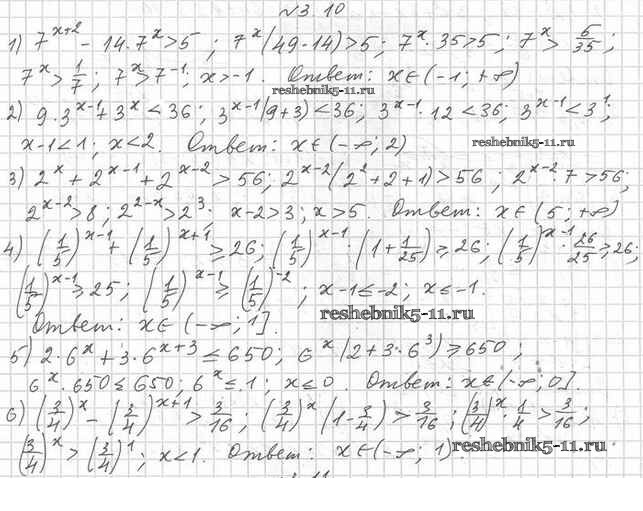 №3.10
1) 7^(x+2) - 14·7^x > 5 ; 7^x (49-14) > 5 ; 7^x · 35 > 5 ; 7^x > 5/35 ;
7^x > 1/7 ; 7^x > 7^(-1) ; x > -1. Ответ: x ∈ (-1; +∞)
reshebnik5-11.ru
2) 9·3^(x-1) + 3^x < 36 ; 3^(x-1) (9+3) < 36 ; 3^(x-1) · 12 < 36 ; 3^(x-1) < 3^1 ;
x-1 < 1 ; x < 2. Ответ: x ∈ (-∞; 2) reshebnik5-11.ru
3) 2^x + 2^(x-1) + 2^(x-2) > 56 ; 2^(x-2) (2^2 + 2 + 1) > 56 ; 2^(x-2) · 7 > 56 ;
2^(x-2) > 8 ; 2^(2-x) > 2^3 ; x-2 > 3 ; x > 5. Ответ: x ∈ (5; +∞)
4) (1/5)^(x-1) + (1/5)^(x+1) ≥ 26 ; (1/5)^(x-1) · (1 + 1/25) ≥ 26 ; (1/5)^(x-1) · 26/25 ≥ 26 ;
(1/5)^(x-1) ≥ 25 ; (1/5)^(x-1) ≥ (1/5)^(-2) ; x-1 ≤ -2 ; x ≤ -1.
reshebnik5-11.ru
Ответ: x ∈ (-∞; 1].
5) 2·6^x + 3·6^(x+3) ≤ 650 ; 6^x (2 + 3·6^3) ≥ 650 ;
6^x · 650 ≤ 650 ; 6^x ≤ 1 ; x ≤ 0. Ответ: x ∈ (-∞; 0].
6) (3/4)^x - (3/4)^(x+1) > 3/16 ; (3/4)^x (1 - 3/4) > 3/16 ; (3/4)^x · 1/4 > 3/16 ;
(3/4)^x > (3/4)^1 ; x < 1. Ответ: x ∈ (-∞; 1) reshebnik5-11.ru